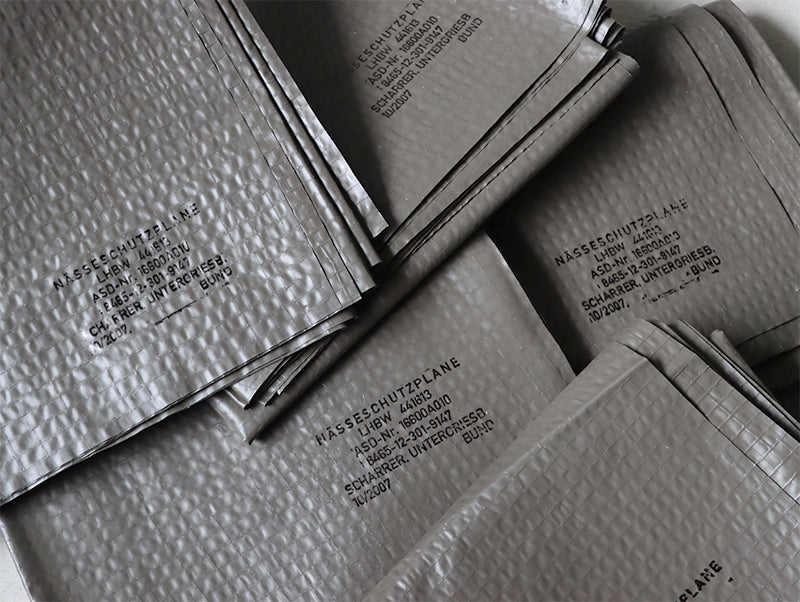 NÄSSESCHUTZPLANE
LHBW 441613
ASD-Nr. 16600A010
8465-12-301-9147
SCHARRER, UNTERGRIESB
BUND
10/2007
NÄSSESCHUTZPLANE
LHBW 441613
ASD-Nr. 16600A010
8465-12-301-9147
CHARRER, UNTERGRIESB.
BUND
/2007.
NÄSSESCHUTZPLANE
LHBW 441613
ASD-Nr. 16600A010
8465-12-301-9147
SCHARRER, UNTERGRIESB.
BUND
10/2007.
NÄSSESCHUTZPLANE
LHBW 441613
ASD-Nr. 16600A010
8465-12-301-9147
SCHARRER, UNTERGRIESB.
BUND
10/2007
PLANE